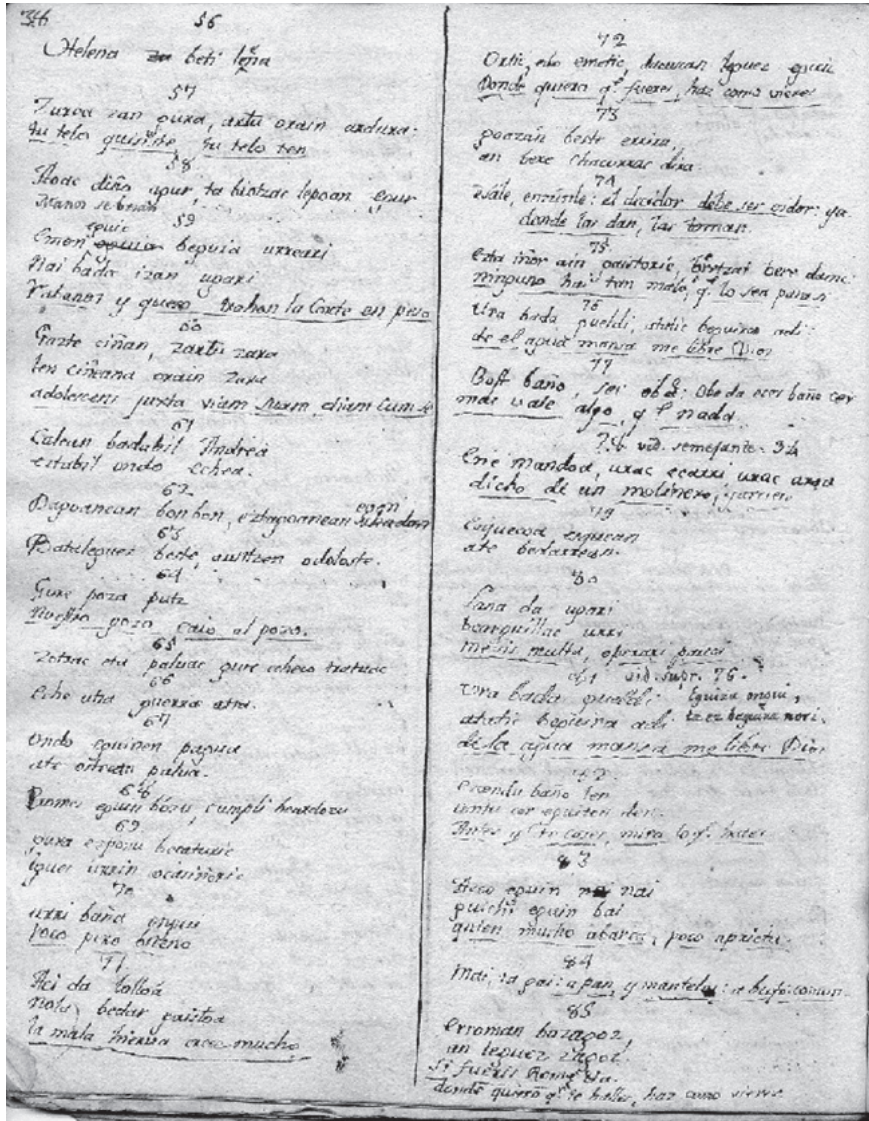 346
56
Utelena beti lena
57
Zurea zan gura, artu orain ardura:
tu telo quisiste, tu telo ten
58
Aoac diño apur, ta biotzac lepoan epur
59
Emon eguic beguia urreari
Nai bada izan ugari
y queso trahen la Corte en peso
60
Gazte ciñan, zartu zara
len ciñeana orain zara
adolescens juxta viam suam, etiam cum se
61
Calean badabil Andrea
estabil ondo echea.
62
Dagoanean bonbon, eztagoanean egon
63
beste, austzen odoloste.
64
Gure poza putz
Nuestro gozo caio al pozo.
65
Zotzac eta paluac gure echeco tratuac
66
Eche utsa guerra atsa.
67
Ondo eguinen pagua
ate ostean palua.
68
Promes eguin bozu, cumpli beardozu
69
gura ezpozu becaturic
igues eguin ocasinoric
70
urri baña ongui
poco pero bueno
71
Aci da lolloa
nola bedar gaistoa
la mala hierva crece mucho
72
Ortic, edo emetic, dacusan leguez eguic
Donde quiera q.e fueres, haz como vieres
73
goazán beste errira,
an bere chacurrac dira.
74
Esále, enzunle: el decidor debe ser oidor ya
donde las dan, las toman.
75
Ezta iñor ain gaistoric, beretzat bere danic
ninguno hai tan malo, q.e lo sea para si
76
Ura bada gueldi, atatic beguira adi:
de el agua mansa me libre Dios
77
Bost baño, sei obe: Obe da ecer baño ecer
mas vale algo, q.e nada
78 vid. semejante. 34
Erie mandoa, urac ecarri urac aroa
dicho de un molinero,
79
Esquecoa esquean
ate bertarrean.
80
Lana da ugari
bearguillac urri
mesis multa, operarii pauci
81 vid. supr. 76.
Ura bada gueldi: Eguizu ongui,
atatic beguira adi: ta ez beguira nori.
de la agua mansa me libre Dios
82
Ezcondu baño len
contu cer eguiten den.
Antes q.e te cases, mira lo q.e haces
83
Asco eguin nai
guichi eguin bai
quien mucho abarca, poco aprieta.
84
Mai, ta gai: a pan, y manteles:
85
Erroman bazagoz,
an leguez zagoz.
Si fueris Romę
donde quiera q.e te halles, haz como vieres